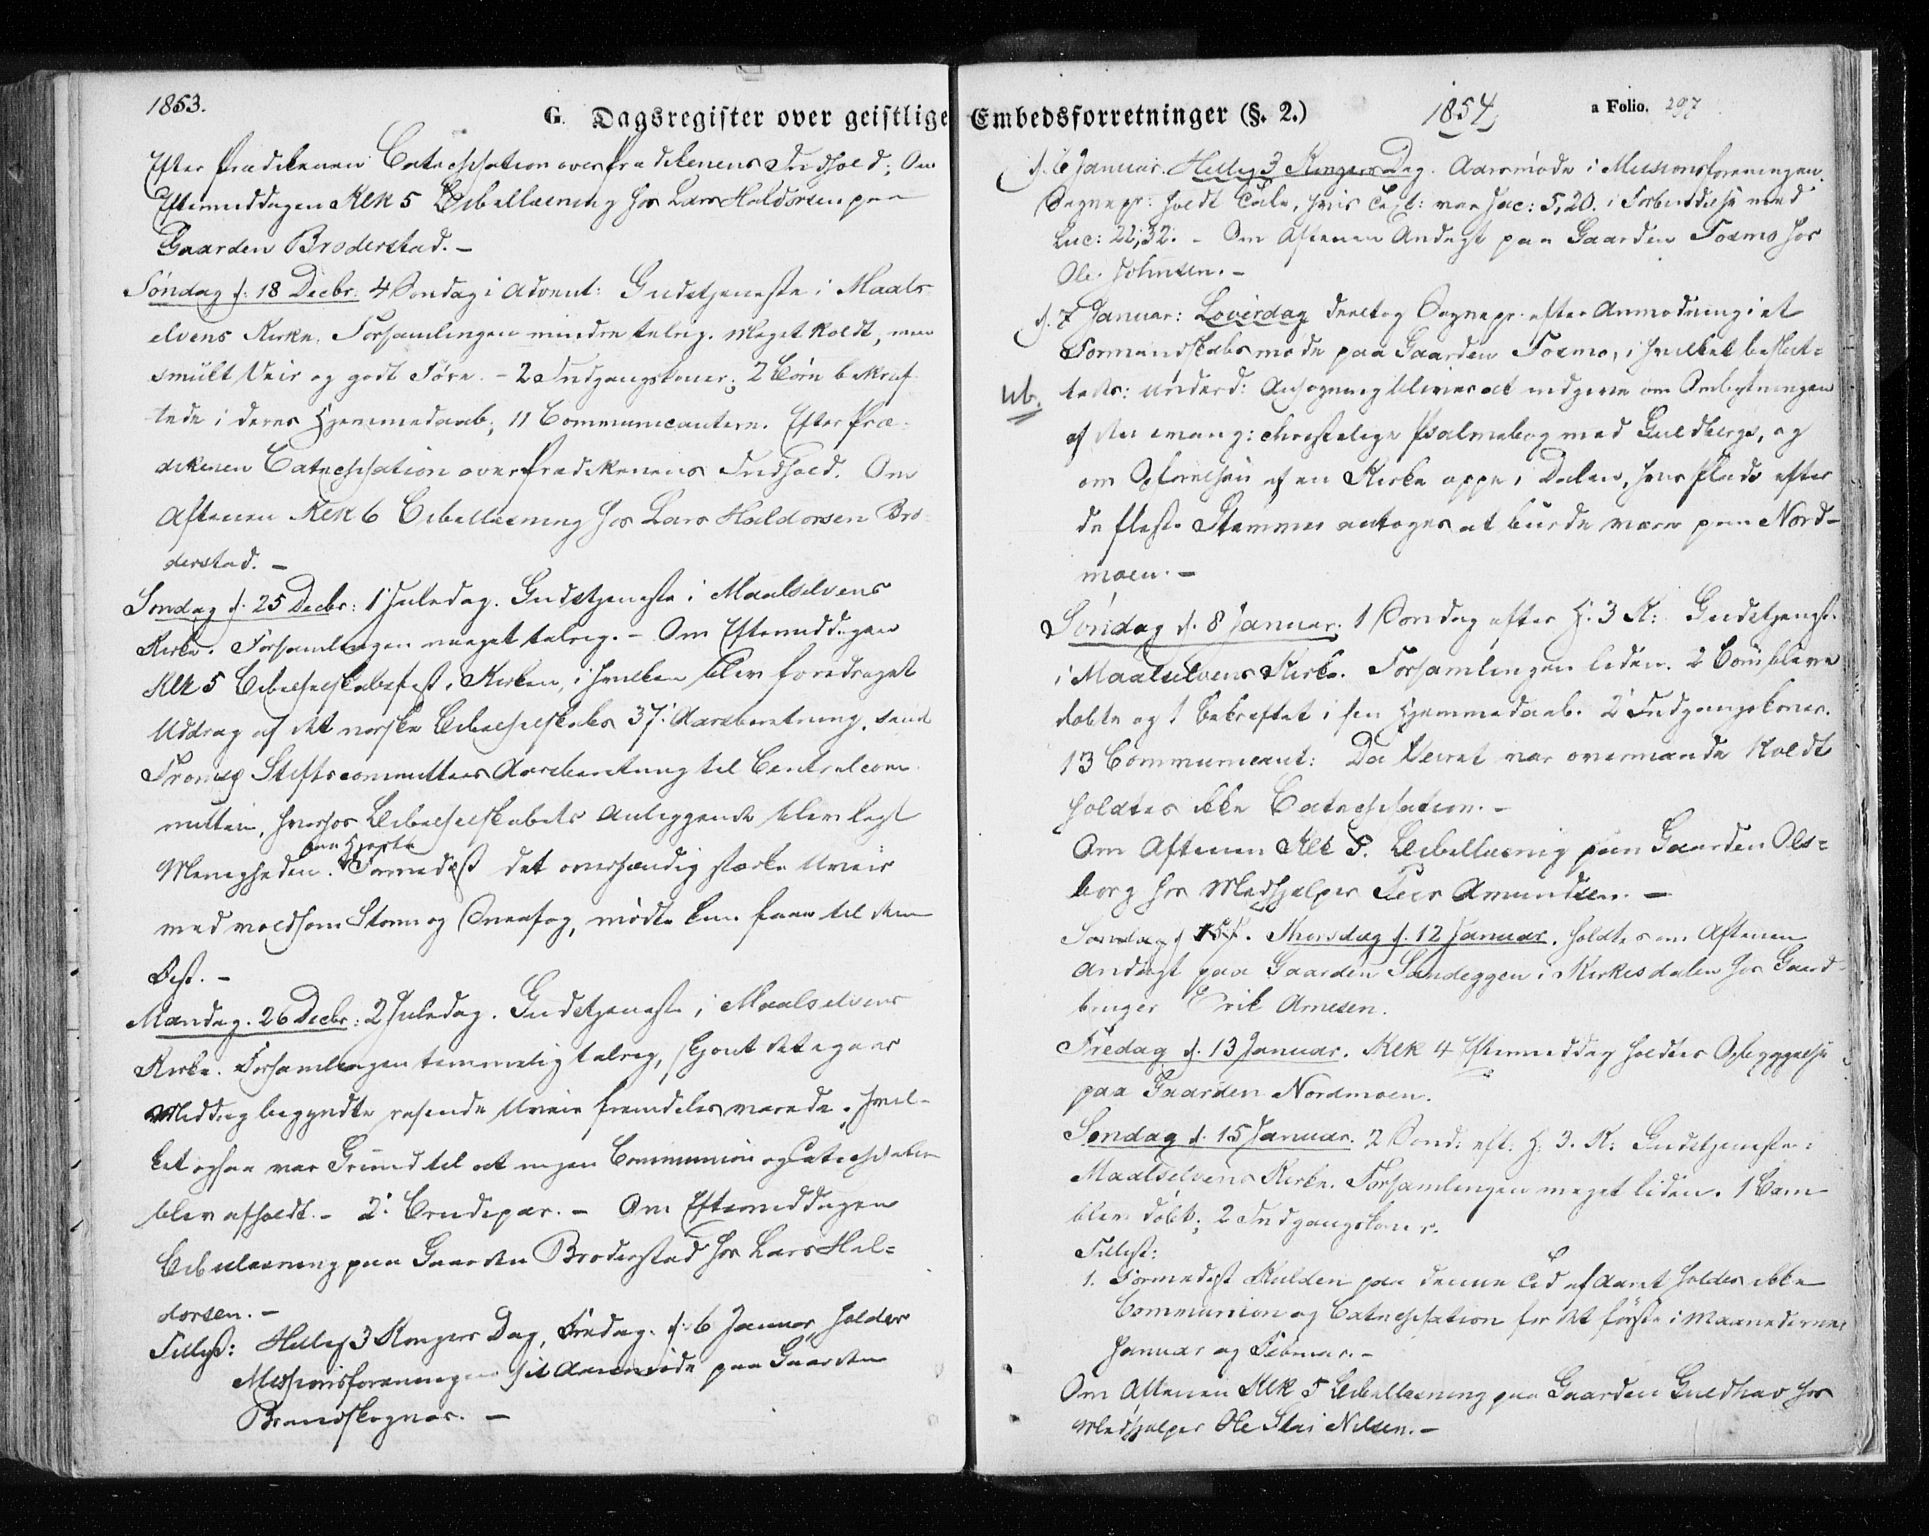 1853.
G. Dagsregister over geistlige
Efter Prædikenen Catechisation over Prædikenens Indhold; Om
Eftermiddagen Klk 5 Bibellæsning hos Lars Haldorsen paa
Gaarden Broderstad. –
Søndag d. 18 Decbr. 4 Søndag i Advent: Gudstjeneste i Maals
elvens Kirke. Forsamlingen mindre talrig. Meget koldt, men
smült Veir og godt Føre. – 2 Indgangskoner; 2 Børn bekræf
tede i deres Hjemmedaab; 11 Communicantere. Efter Præ-
dikenen Catechisation over Prædikenens Indhold. Om
Aftenen Klk 6 Bibellæsning hos Lars Haldorsen Bro
derstad. –
Søndag d. 25 Decbr: 1 Juledag. Gudstjeneste i Maalselvens
Kirke. Forsamlingen meget talrig. – Om Eftermiddagen
Klk 5 Bibelselskabsfest i Kirken, i hvilken blev foredraget
Uddrag af det norske Bibelselskabs 37. Aarsberetning, samt
Tromsø Stiftscommittees Aarsberetning til Centralcom
mitteen, hvorhos Bibelselskabets Anliggende blev lagt
paa Hjerte
Menigheden. Formedelst det overhændig stærke Uveir
med voldsom Storm og Sneefog, mødte kun faae til denne
Fest. –
Mandag. 26 Decbr: 2 Juledag. Gudstjeneste i Maalselvens
Kirke. Forsamlingen temmelig talrig, skjønt det igaar
Middag begyndte rasende Uveir fremdeles varede, hvil-
ket ogsaa var Grund til at ingen Communion og Catechisation
blev afholdt. – 2 Brudepar. – Om Eftermiddagen
Bibellæsning paa Gaarden Broderstad hos Lars Hal-
dorsen. –
Tillyst: Hellig 3 Kongers Dag, Fredag d. 6 Januar, holder
Missionsforeningen sit Aarsmøde paa Gaarden
Brandskognæs. –
Embedsforretninger (§. 2.) 1854 a Folio. 297
d. 6 Januar. Hellig 3 Kongers Dag. Aarsmøde i Missionsforeningen.
Sognepr: holdt Tale, hvis Text: var Jac: 5,20. i Forbindelse med
Luc: 22,32. – Om Aftenen Andagt paa Gaarden Foxmo hos
Ole Johnsen. –
d. 7 Januar: Løverdag deeltog Sognepr. efter Anmodning i et
Formandskabsmøde paa Gaarden Foxmo, i hvilket beslut=
Nb.
tedes: underd: Ansøgning bliver at indgive om Ombytningen
af den evang: christelige Psalmebog med Guldbergs, og
om Opførelsen af en Kirke oppe i Dalen, hvis Plads efter
de fleste Stemmer antoges at burde være paa Nord-
moen. –
Søndag d. 8 Januar. 1 Søndag efter H. 3 K: Gudstjeneste
i Maalselvens Kirke. Forsamlingen liden. 2 Børn bleve
døbte og 1 bekræftet i sin Hjemmedaab. 2 Indgangskoner.
13 Communicant: Da Veiret var overmaade koldt
holdtes ikke Catechisation. –
Om Aftenen Klk 5. Bibellæsning paa Gaarden Ols=
borg hos Medhjelper Peer Amundsen. –
Søndag d 15. Thorsdag d. 12 Januar. holdtes om Aftenen
Andagt paa Gaarden Sandeggen i Kirkesdalen hos Gaard-
bruger Erik Arnesen.
Fredag d. 13 Januar. Klk 4 Eftermiddag holdtes Opbyggelse
paa Gaarden Nordmoen.
Søndag d. 15 Januar. 2 Sønd: eft: H. 3. K: Gudstjeneste i
Maalselvens Kirke. Forsamlingen meget liden. 1 Barn
blev døbt; 2 Indgangskoner.
Tillyst:
1. Formedelst Kulden paa denne Tid af Aaret holdes ikke
Communion og Catechisation for det første i Maanederne
Januar og Februar. –
Om Aftenen Klk 5 Bibellæsning paa Gaarden Guldhav hos
Medhjelper Ole Nilsen. –